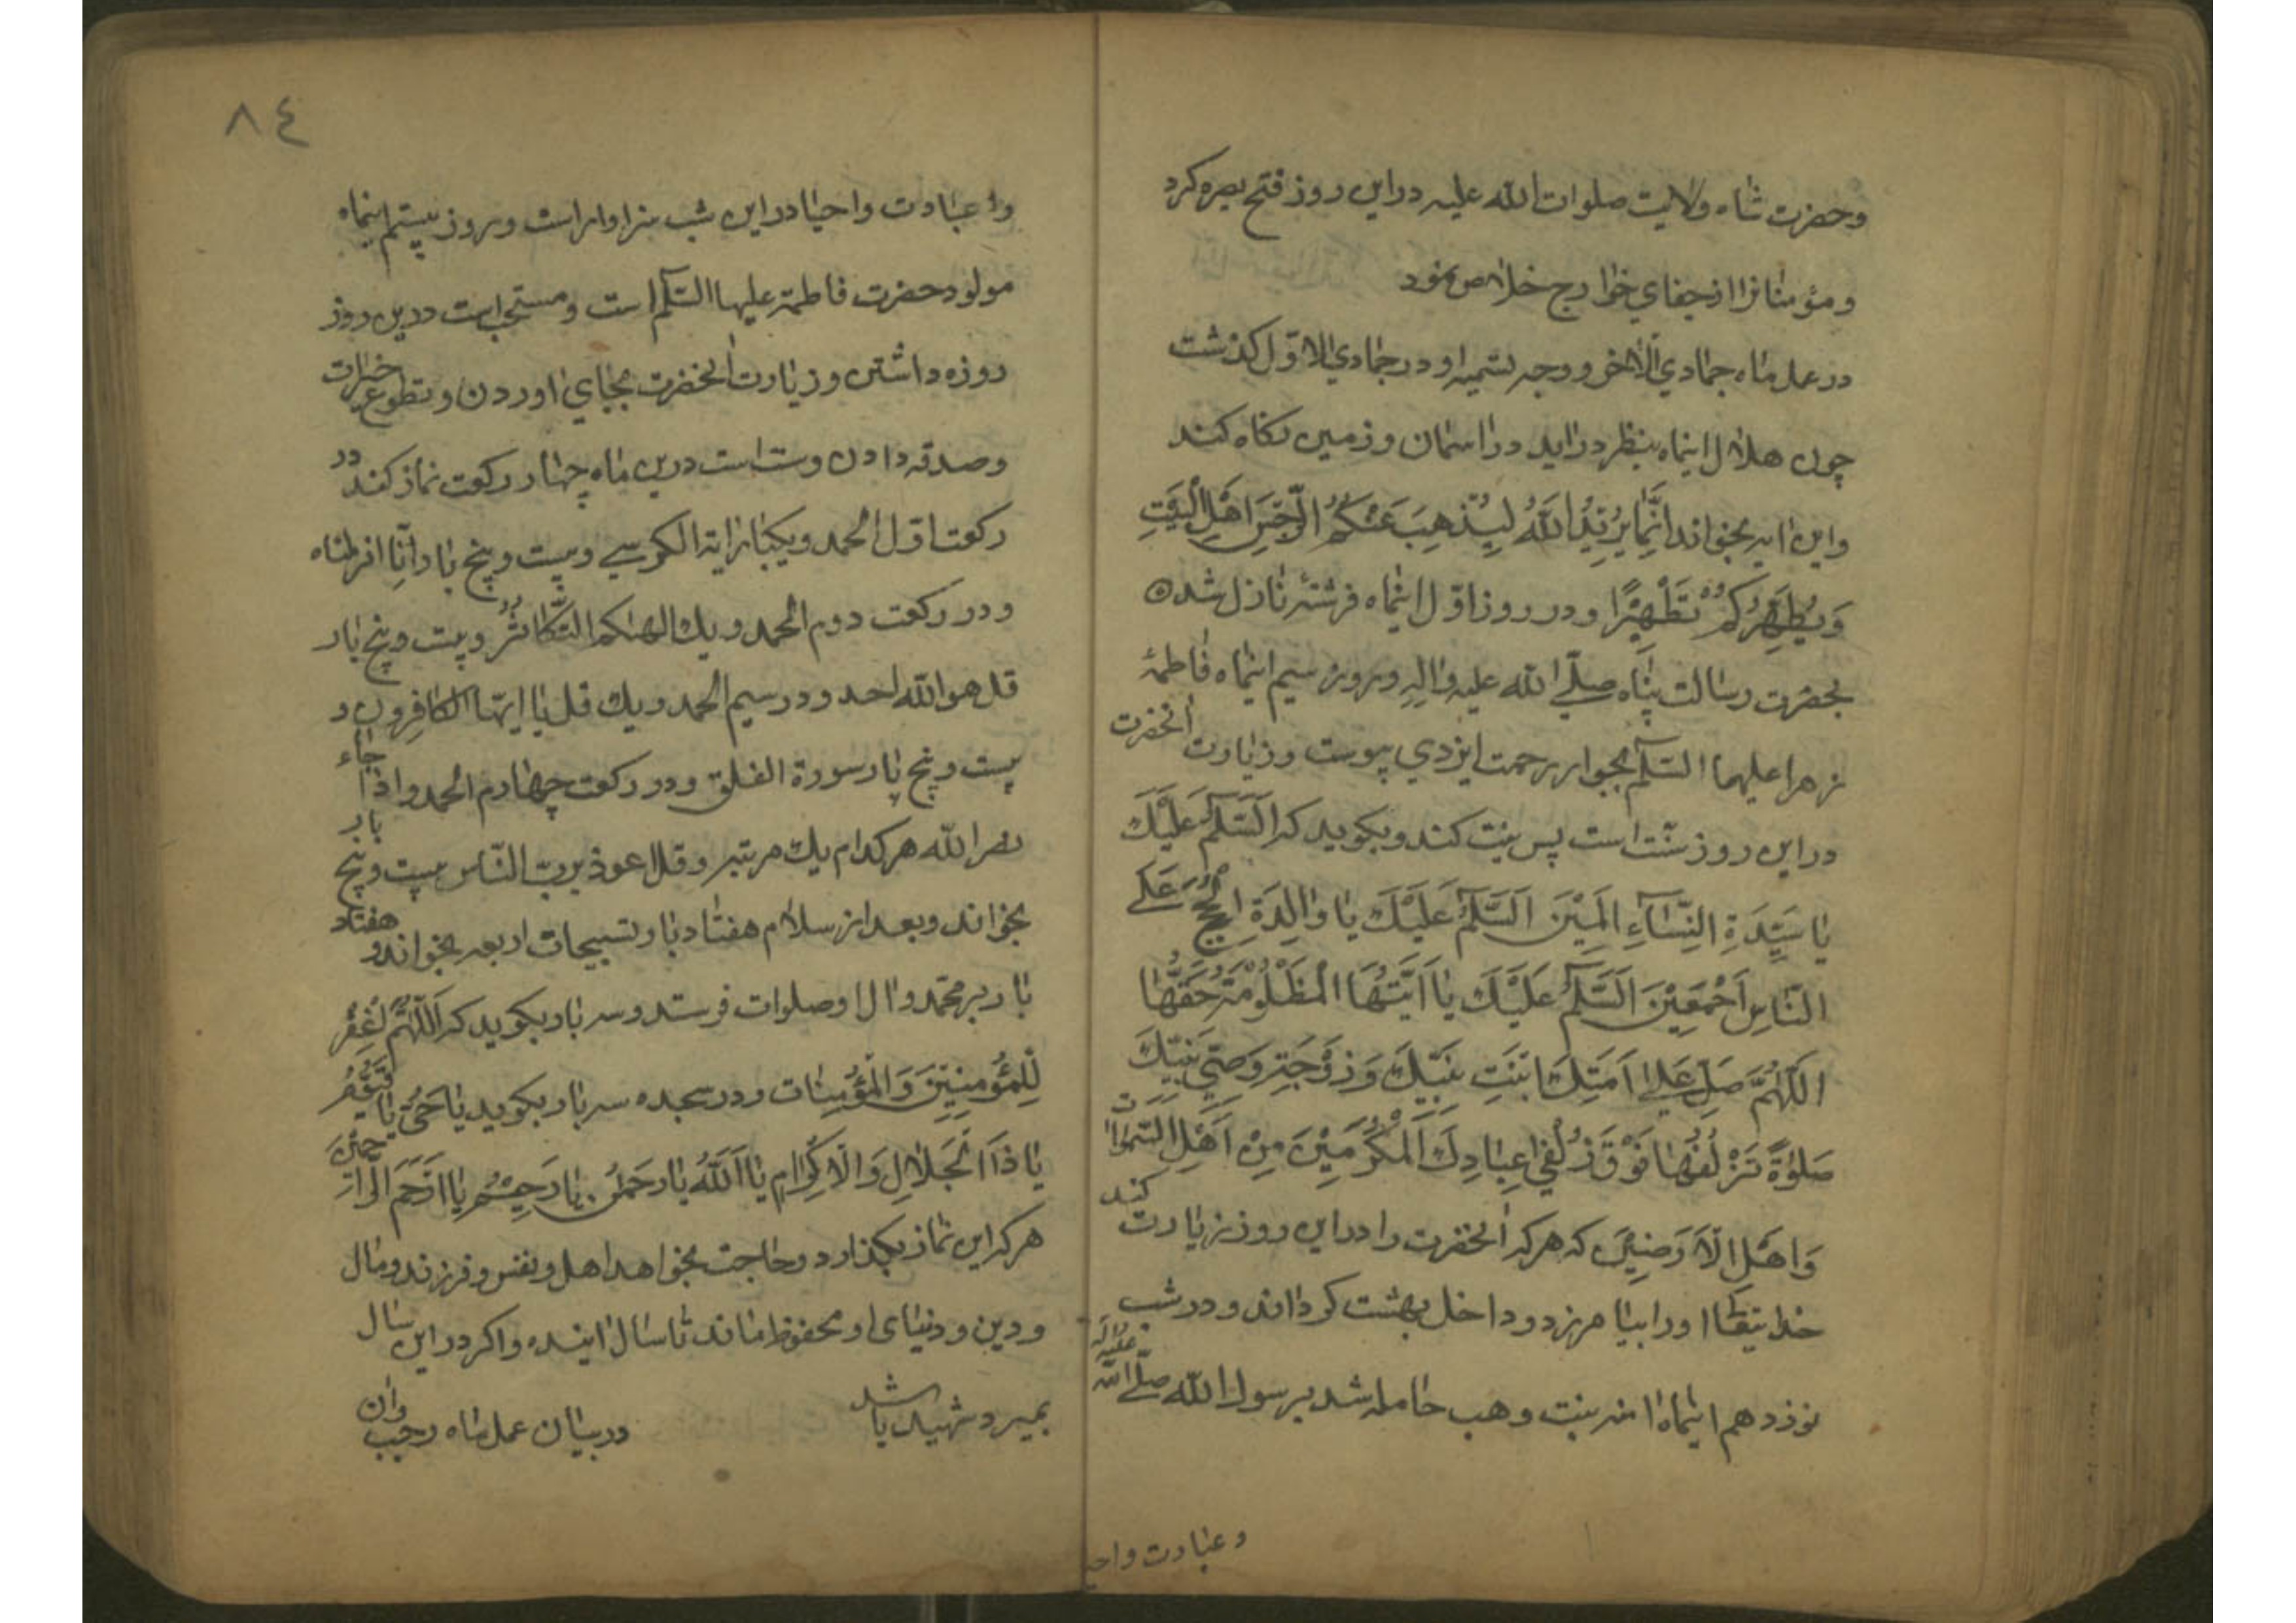 وحضرت شاه ولايت صلوات الله عليه دراين روز فتح بصره كرد
ومؤمنانرا ازجفاي خوارج خلاص نمود
درعمل ماه جمادي الاخر ووجه تسميه او درجمادي الاول كذشت
چون هلال اينماه بنظر درايد دراسمان وزمين نكاه كند
واين ايه بخواند اِنَّمَا يُرِيْدُ اللّٰهُ لِيُذْهِبَ عَنْكُمُ الرِّجْسَ اَهْلَ الْبَيْتِ
وَيُطَهِّرَكُمْ تَطْهِيْرًا ودر روز اوّل اينماه فرشته نازل شد ه
بحضرت رسالت پناه صلّي الله عليه واله وبروز سيم اينماه فاطمهٔ
زهرا عليهما السّلم بجوار رحمت ايزدي پيوست وزيارت انحضرت
دراين روز سنّت است پس نيت كند وبكويد كه اَلسَّلَمُ عَلَيْكَ
يَا سَيِّدَةِ النِّسَآءِ الَمِيْنَ اَلسَّلَمُ عَلَيْكَ يَا وَالِدَةِ الْحُجَجِ عَلَي
النَّاسِ اَجْمَعِيْنَ اَلسَّلَمُ عَلَيْكَ يَا اَيَّتُهَا الْمَظْلُوْمَةُ حَقَّهَا
اَللّٰهُمَّ صَلِّ عَلٰي اَمَتِكَ ابْنَتِ نَبِيِّكَ وَزَوْجَتِهِ وَصِيِّ نَبِيِّكَ
صَلٰوةً تَزْلُفُهَا فَوْقَ زُلْفٰي عِبَادِكَ الْمُكَرَّمِيْنَ مِنْ اَهْلِ السَّمٰوَاتِ
وَاَهْلِ الْاَرَضِيْنَ كه هركه انحضرت را دراين روز زيارت كند
خدايتعا اورا بيامرزد وداخل بهشت كرداند ودرشب
نوزدهم اينماه امنه بنت وهب حامله شد برسول الله صلّي الله عليه واله
وعبادت واحيـ
٨٤
وعبادت واحيا دراين شب سزاوار است وبروز بيستم اينماه
مولود حضرت فاطمة عليها السّلم است ومستحب است درين روز
روزه داشتن وزيارت انحضرت بجاي اوردن وتطوع خيرات
وصدقه دادن وسنت است درين ماه چهار ركعت نماز كند در
ركعت اوّل الحمد ويكبار اية الكرسي وبيست وپنج بار اِنّا انزلناه
ودر ركعت دوم الحمد ويك الهٰىكم التّكاثر وبيست وپنج بار
قل هوالله احد ودر سيم الحمد ويك قل يا ايّها الكافرون و
بيست وپنج بار سورة الفلق ودر ركعت چهارم الحمد واذا جاء
نصر الله هركدام يك مرتبه وقل اعوذ بربّ النّاس بيست وپنج بار
بخواند وبعد از سلام هفتاد بار تسبيحات اربعه بخواند و هفتاد
بار بر محمّد وال او صلوات فرستد وسه بار بكويد كه اَللّٰهُمَّ اغْفِرْ
لِلْمُؤْمِنِيْنَ وَالْمُؤْمِنَات ودر سجده سه بار بكويد يَا حَيُّ يَا قَيُّوْمُ
يَا ذَا الْجَلَالِ وَالْاِكْرَامِ يَا اَللّٰهُ يَا رَحْمٰنُ يَا رَحِيْمُ يَا اَرْحَمَ الرَّاحِمِيْنَ
هركه اين نماز بكذارد وحاجت بخواهد اهل ونفس وفرزند ومال
ودين ودنياى او محفوظ ماند تا سال اينده واكر دراين سال
بميرد شهيد باشد دربيان عمل ماه رجب وان